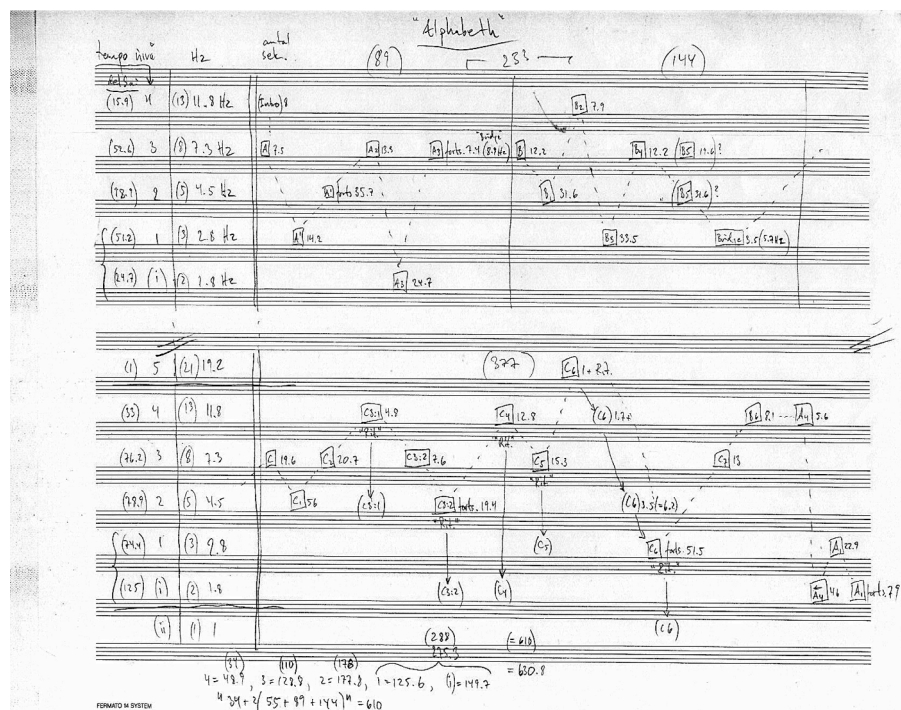 "Alphabeth"
tempo nivå Hz antal sek. (89) 233 (144)
(15.9) 4 (13) 11.8 Hz (Intro) 8 B2 7.9
(52.6) 3 (8) 7.3 Hz A 7.5 A2 13.9 A3 forts. 7.4 "Bridge" (8.9 Hz) B 12.2 B4 12.2 (B5 19.6)?
2 (5) 4.5 Hz A1 forts 35.7 B1 31.6 (B5 31.6)?
(51.2) 1 (3) 2.8 Hz A1 14.2 B3 33.5 Bridge 3.5 (5.7Hz)
(24.7) (i) (2) 1.8 Hz A3 24.7
(1) 5 (21) 19.2 (377) C6 1 + Rit.
(33) 4 (13) 11.8 C3:1 4.8 "Rit." C4 12.8 "Rit." (C6) 1.7+ B6 8.1 ---- A4 5.6
(76.2) 3 (8) 7.3 C 19.6 C2 20.7 C3:2 7.6 C5 15.3 "Rit." C7 13
(78.9) 2 (5) 4.5 C1 56 (C3:1) C3:2 forts. 19.4 "Rit." (C6) 3.5 (=6.2)
(74.4) 1 (3) 2.8 (C5) C6 forts. 51.5 "Rit." A 22.9
(125) (i) (2) 1.8 (C3:2) (C4) A4 46 A1 forts. 79
(ii) (1) 1 (288) (=610) (C6)
275.3
= 630.8
(34) (110) (178)
4 = 48.9, 3 = 128.8, 2 = 177.8, 1 = 125.6, (i) = 149.7
"34 + 2(55 + 89 + 144)" = 610
FERMATO 14 SYSTEM